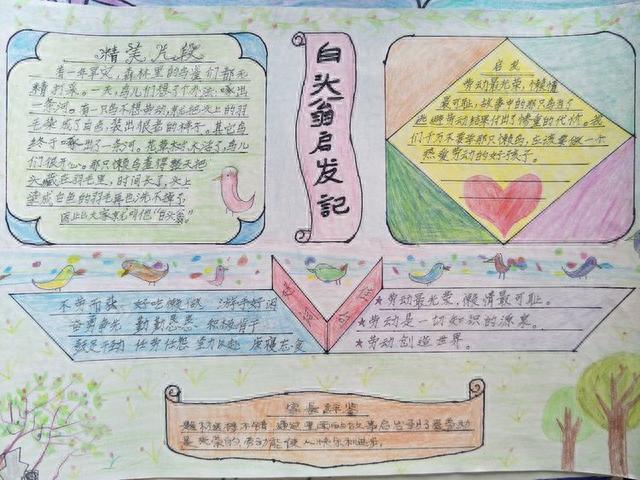 精美片段
有一年旱灾，森林里的鸟崔们都无
精打采。一天，鸟儿们想了个办法，啄出
一条河。有一只鸟不想劳动，就把头上的羽
毛染成了白色，装出很老的样子。其它鸟
终于啄出了一条河。花草树木活了，鸟儿
们很开心。那只懒鸟羞得整天把
头藏在羽毛里，时间长了，头上
染成白色的羽毛再也洗不掉了，
从此大家就叫他"白头翁"。
白头翁启发記
启发
劳动最光荣，懒惰
最可耻，故事中的那只鸟为了
逃避劳动结果付出了惨重的代价。我
们千万不要学那只懒鸟，应该要做一个
热爱劳动的好孩子。
不劳而获 好吃懒做 游手好闲
奋勇争先 勤勤恳恳 积极肯干
任劳任怨 废寝忘食
★劳动最光荣，懒惰最可耻。
★劳动是一切知识的源泉。
★劳动创造世界。
家長評鉴
题材选择不错